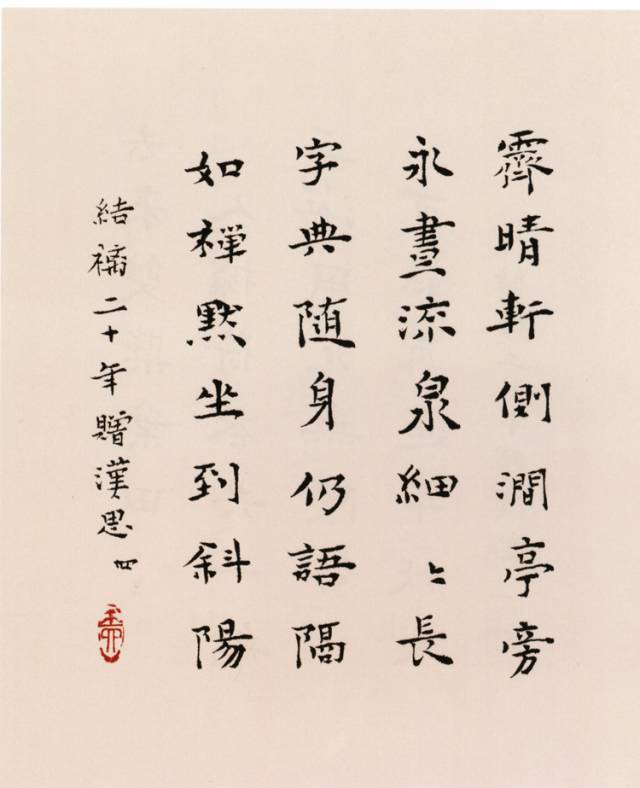 霽晴軒側澗亭旁
永晝流泉細〻長
字典随身仍語隔
如禪默坐到斜陽
結褵二十年贈漢思 四